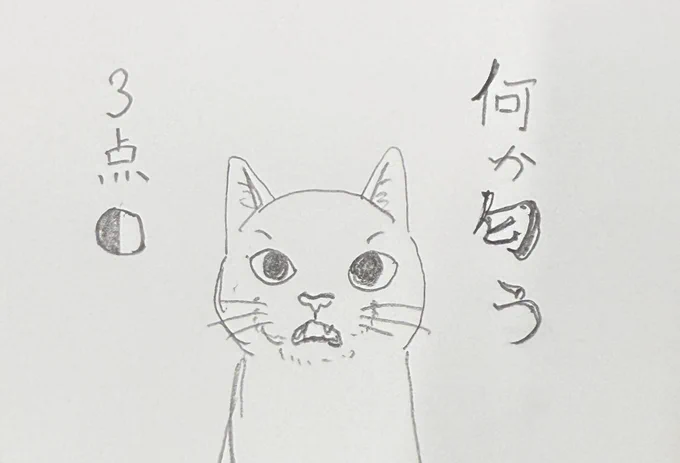 何か匂う
3点